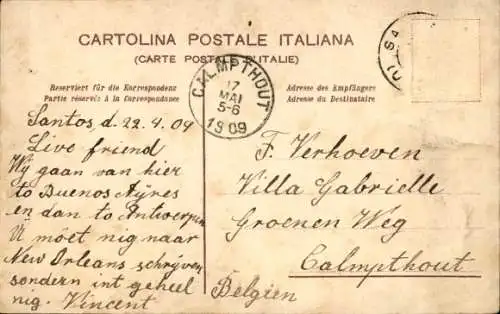 CARTOLINA POSTALE ITALIANA
(CARTE POSTALE D'ITALIE)
Reserviert für die Korrespondenz
Partie réservée à la Correspondance
Adresse des Empfängers
Adresse du Destinataire
CALMPTHOUT
17
MAI
5-6
1909
Santos, d. 22.4.09
Live friend
Wy gaan van hier
to Buenos Ayres
en dan to Antwerpen
U möet nig naar
New Orleans schryven
sondern int geheel
nig. Vincent
F. Verhoeven
Villa Gabrielle
Groenen Weg
Calmpthout
Belgien